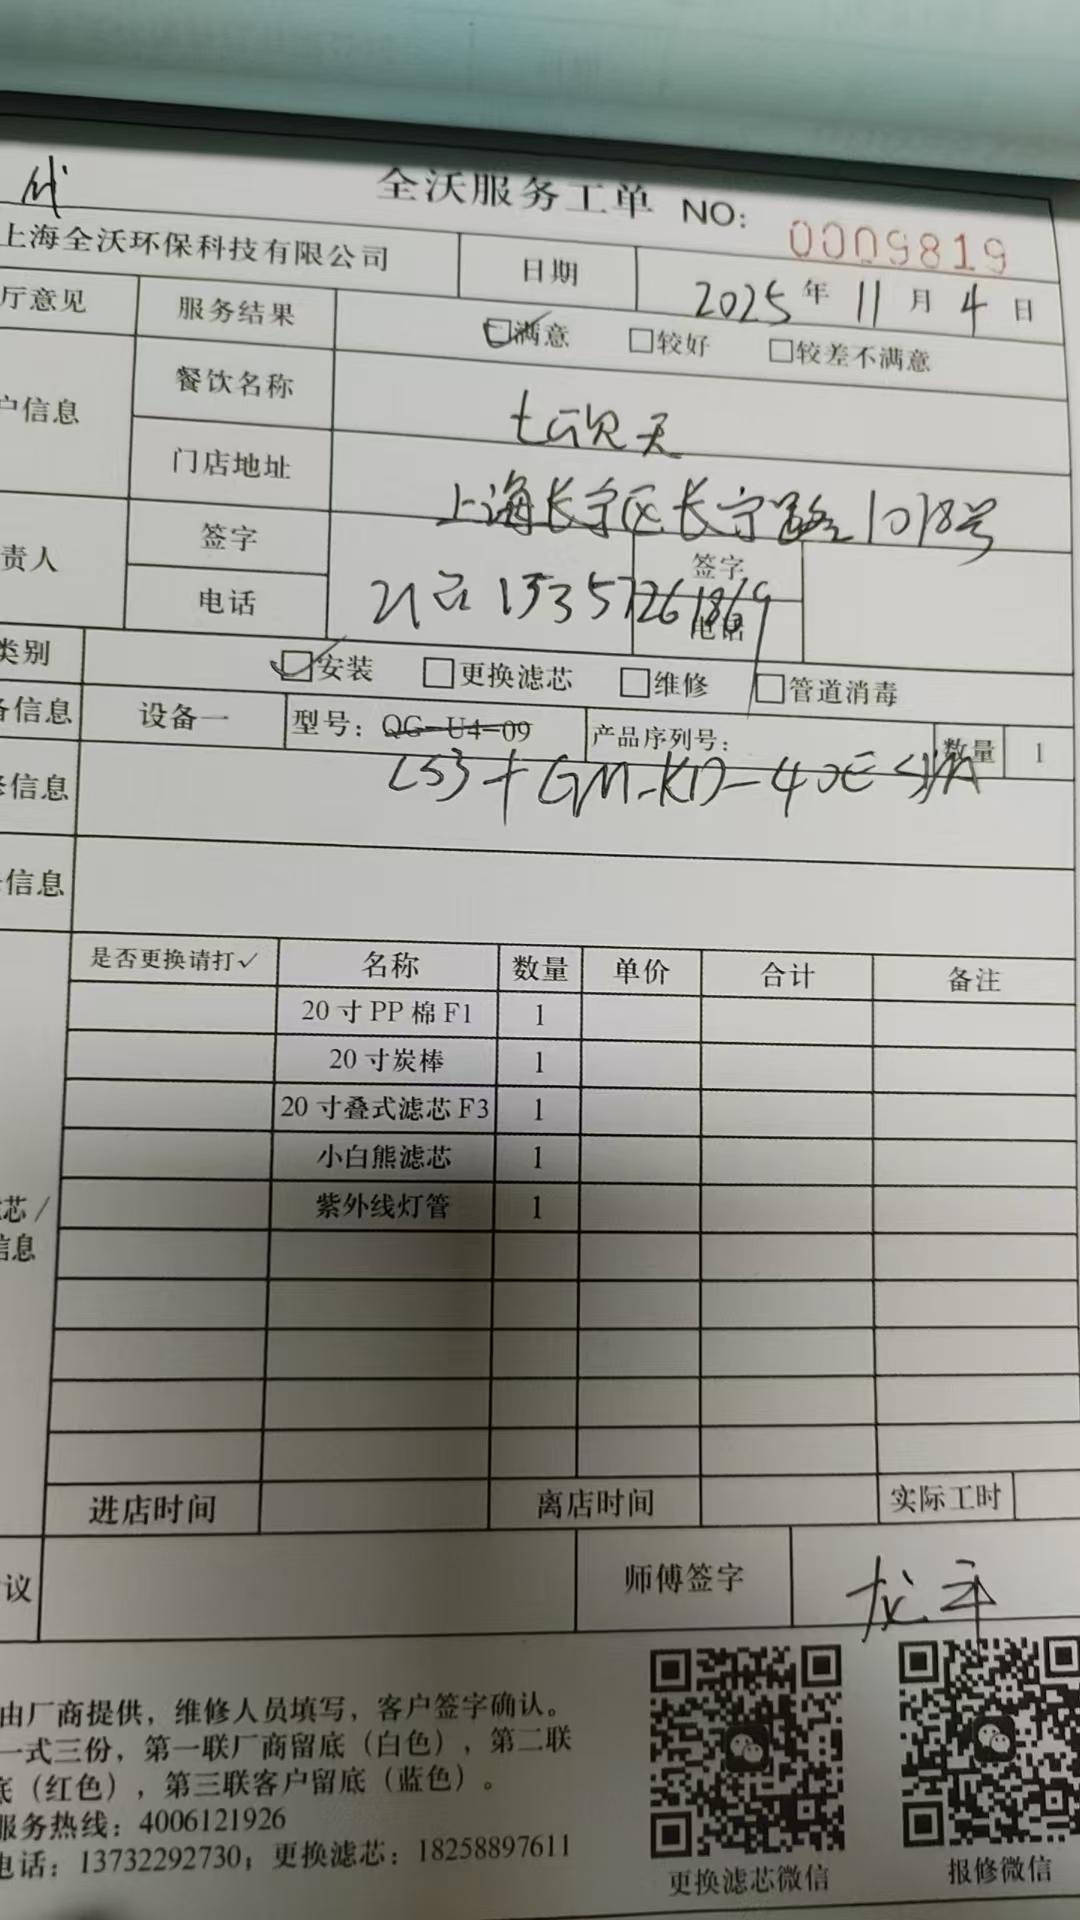 全沃服务工单 NO: 0009819
上海全沃环保科技有限公司 日期 2025年11月4日
厅意见 服务结果 ☑满意 □较好 □较差不满意
户信息 餐饮名称 七欣天
门店地址 上海长宁区长宁路1018号
责人 签字 签字
电话 15357261869 电话
类别 ☑安装 □更换滤芯 □维修 □管道消毒
备信息 设备一 型号：QG-U4-09 产品序列号： 数量 1
信息 +GM-KD-40E
信息
是否更换请打✓ 名称 数量 单价 合计 备注
20寸PP棉F1 1
20寸炭棒 1
20寸叠式滤芯F3 1
小白熊滤芯 1
紫外线灯管 1
芯/
信息
进店时间 离店时间 实际工时
议 师傅签字 龙平
由厂商提供，维修人员填写，客户签字确认。
一式三份，第一联厂商留底（白色），第二联
底（红色），第三联客户留底（蓝色）。
服务热线：4006121926
电话：13732292730；更换滤芯：18258897611
更换滤芯微信 报修微信